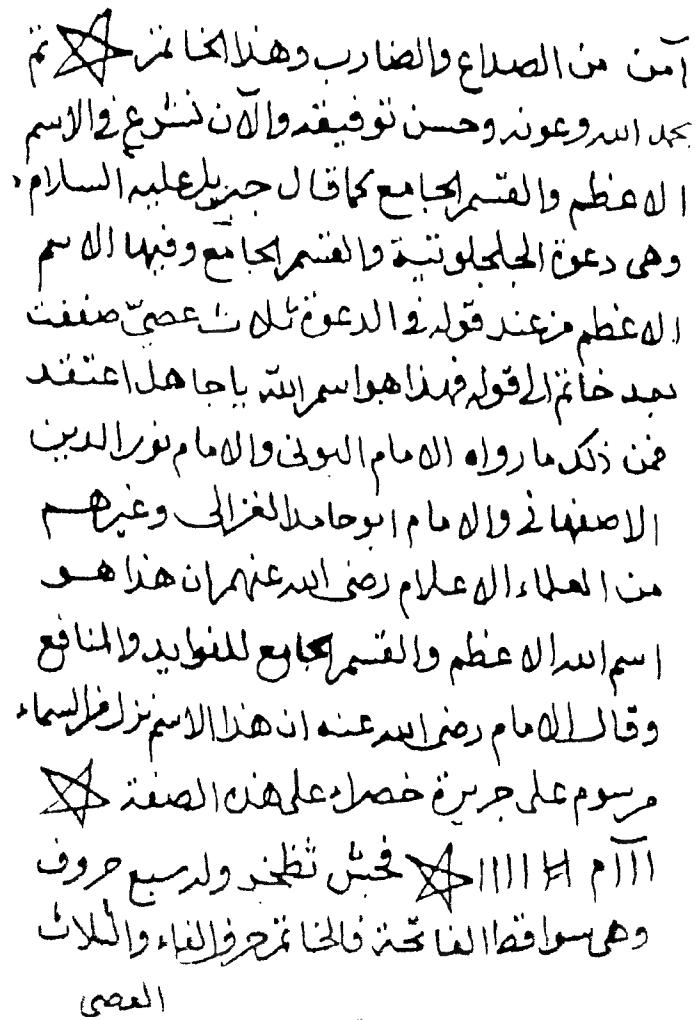 آمن من الصداع والضارب وهذا الخاتم ⛤ تم
بحمد الله وعونه وحسن توفيقه والآن نشرع في الاسم
الاعظم والقسم الجامع كما قال جبريل عليه السلام
وهى دعوة الجلجلوتية والقسم الجامع وفيها الاسم
الاعظم من عند قوله في الدعوة ثلاث عصىّ صففت
بعد خاتم الى قوله فهذا هو اسم الله يا جاهل اعتقد
فمن ذلك ما رواه الامام البونى والامام نور الدين
الاصفهانى والامام ابو حامد الغزالى وغيرهم
من العلماء الاعلام رضى الله عنهم ان هذا هو
اسم الله الاعظم والقسم الجامع للفوايد والمنافع
وقال الامام رضى الله عنه ان هذا الاسم نزل من السماء
مرسوم على جريرة خضراء على هذه الصفة ⛤
ااآم # ااااا ⛤ فجش ثظخز وله سبع حروف
وهى سواقط الفاتحة فالخاتم حرف الفاء والثلاث
العصى